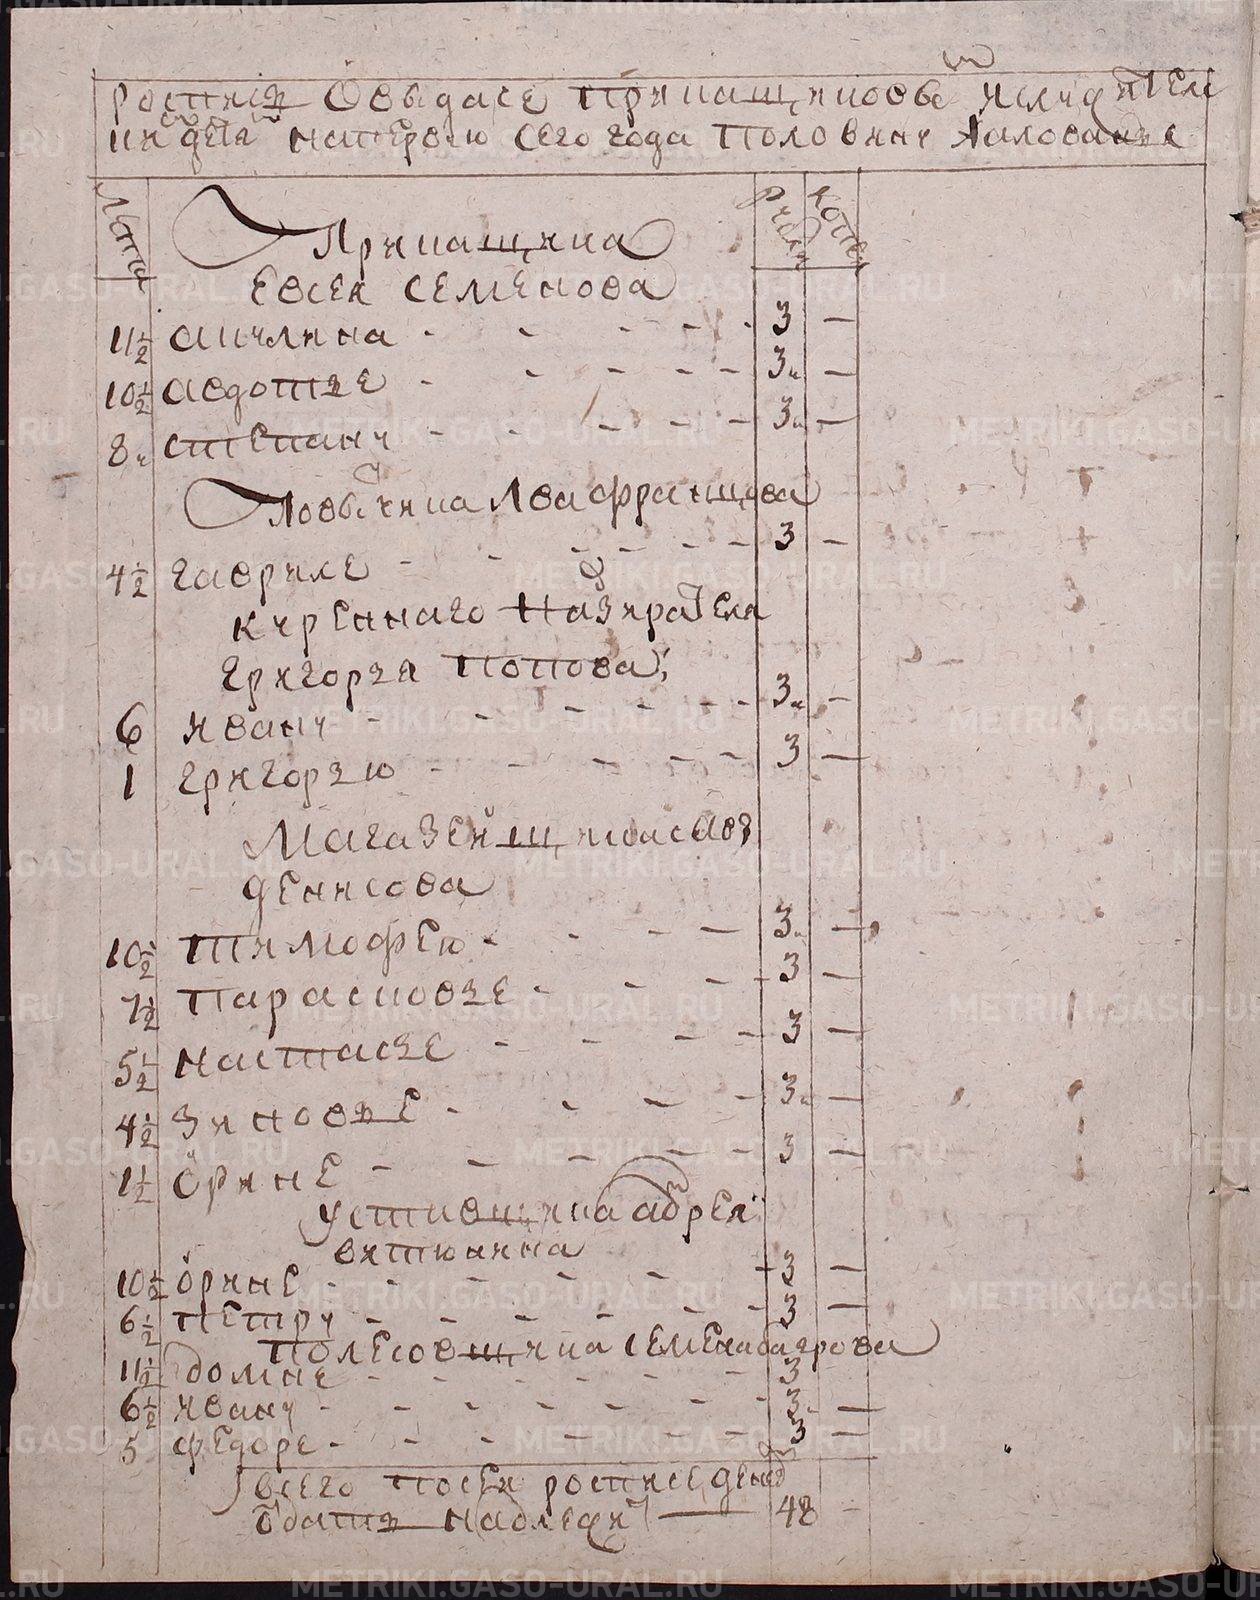 роспись овыдасе прикащиковы ислужител
ихдетя напервую сего года половину жалованья
Лета
рубли
копеи
Прикащика
Евсея Семенова
11 1/2 акулина - - - - - 3 —
10 1/2 авдотье - - - - - 3 —
8 степану - - - - - 3 —
Повытчика Лва францова
4 1/2 гавриле - - - - - 3 —
куреннаго надзирателя
григорья попова
6 ивану - - - - - 3 —
1 григорью - - - - - 3 —
Магазейщика савы
денисова
10 1/2 тимофею - - - 3 —
7 1/2 парасковье - - - 3 —
5 1/2 настасье - - - 3 —
4 1/2 зиновье - - - 3 —
1 1/2 орине - - - - 3 —
уставщика адрея
витюнина
10 1/2 орине - - - - - 3 —
6 1/2 петру - - - - - 3 —
полесовщика семена багрова
11 1/2 домне - - - - - 3
6 1/2 ивану - - - - - 3 —
5 федоре - - - - - 3 —
всего посей росписе денег
отдать надлежит — 48 -
METRIKI.GASO-URAL.RU